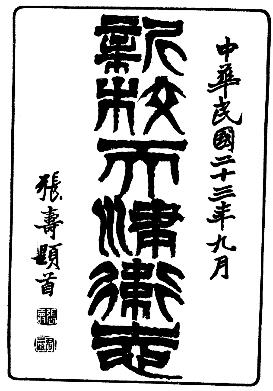 中華民國二十三年九月
新校天津衛志
張壽題首